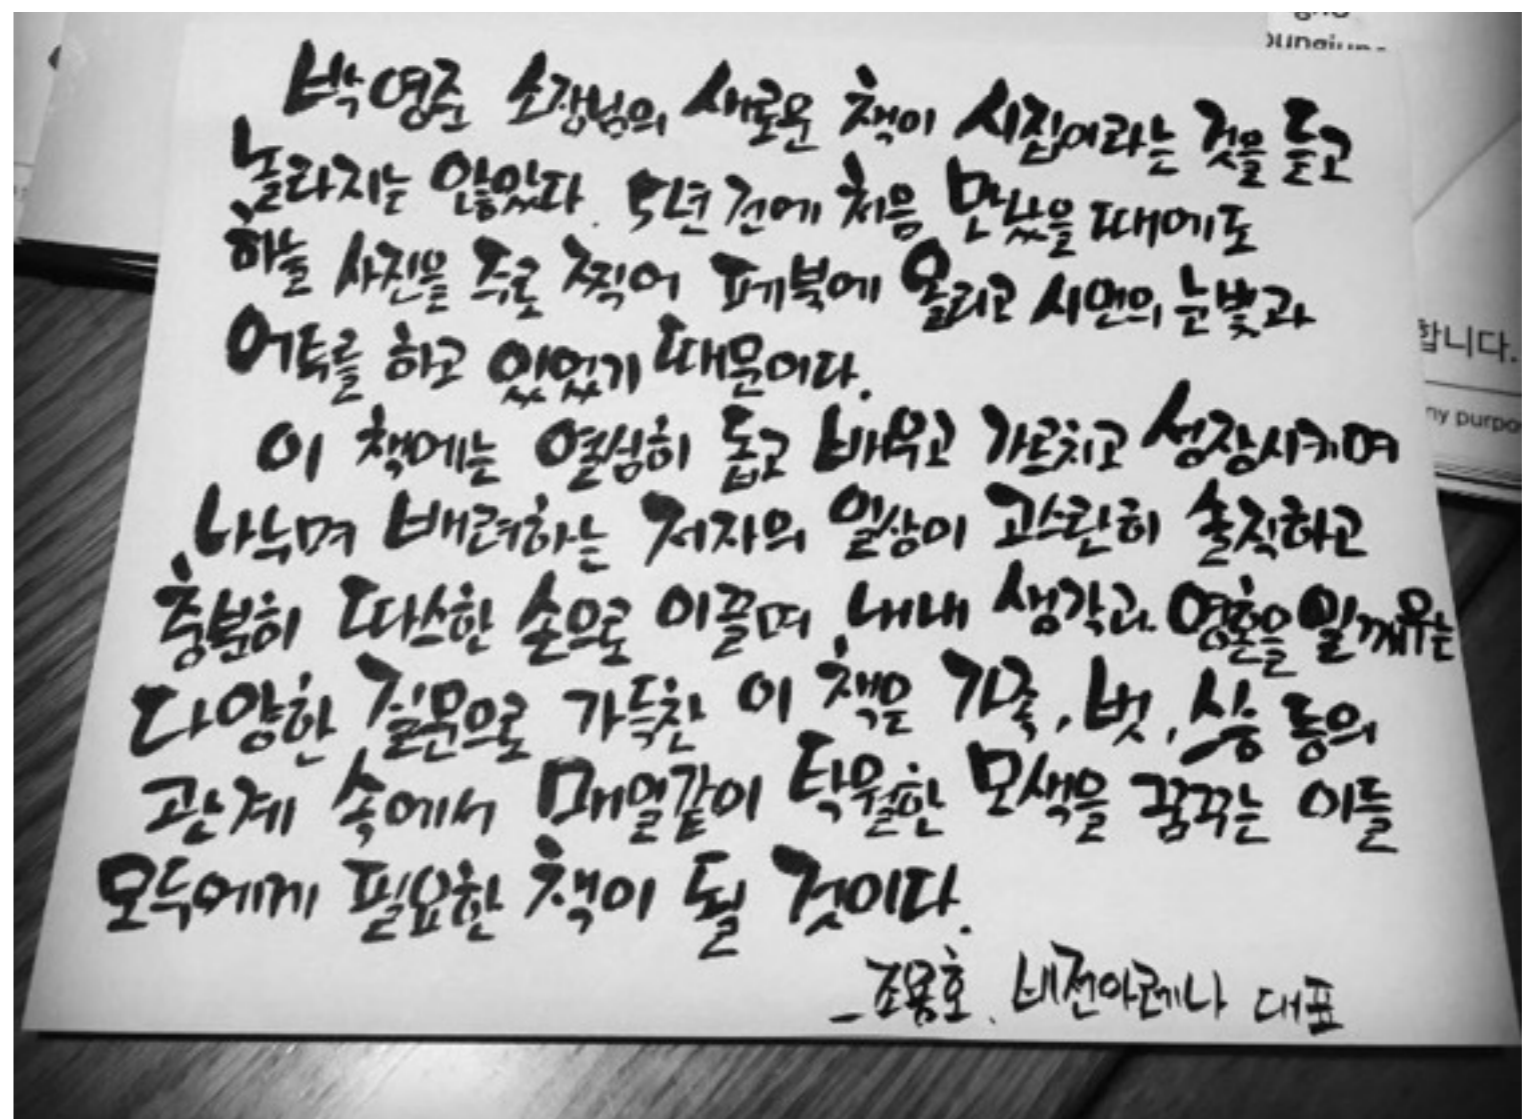 박영준 소장님의 새로운 책이 시집이라는 것을 듣고
놀라지는 않았다. 5년 전에 처음 만났을 때에도
하늘 사진을 주로 찍어 페북에 올리고 시인의 눈빛과
어투를 하고 있었기 때문이다.
이 책에는 열심히 돕고 배우고 가르치고 성장시키며
나누며 배려하는 저자의 일상이 고스란히 솔직하고
충분히 따스한 손으로 이끌며 내내 생각과 영혼을 일깨우는
다양한 질문으로 가득찬 이 책은 가족, 벗, 스승 등의
관계 속에서 매일같이 탁월한 모색을 꿈꾸는 이들
모두에게 필요한 책이 될 것이다.
_조용호. 비전아레나 대표
합니다.
ny purpo